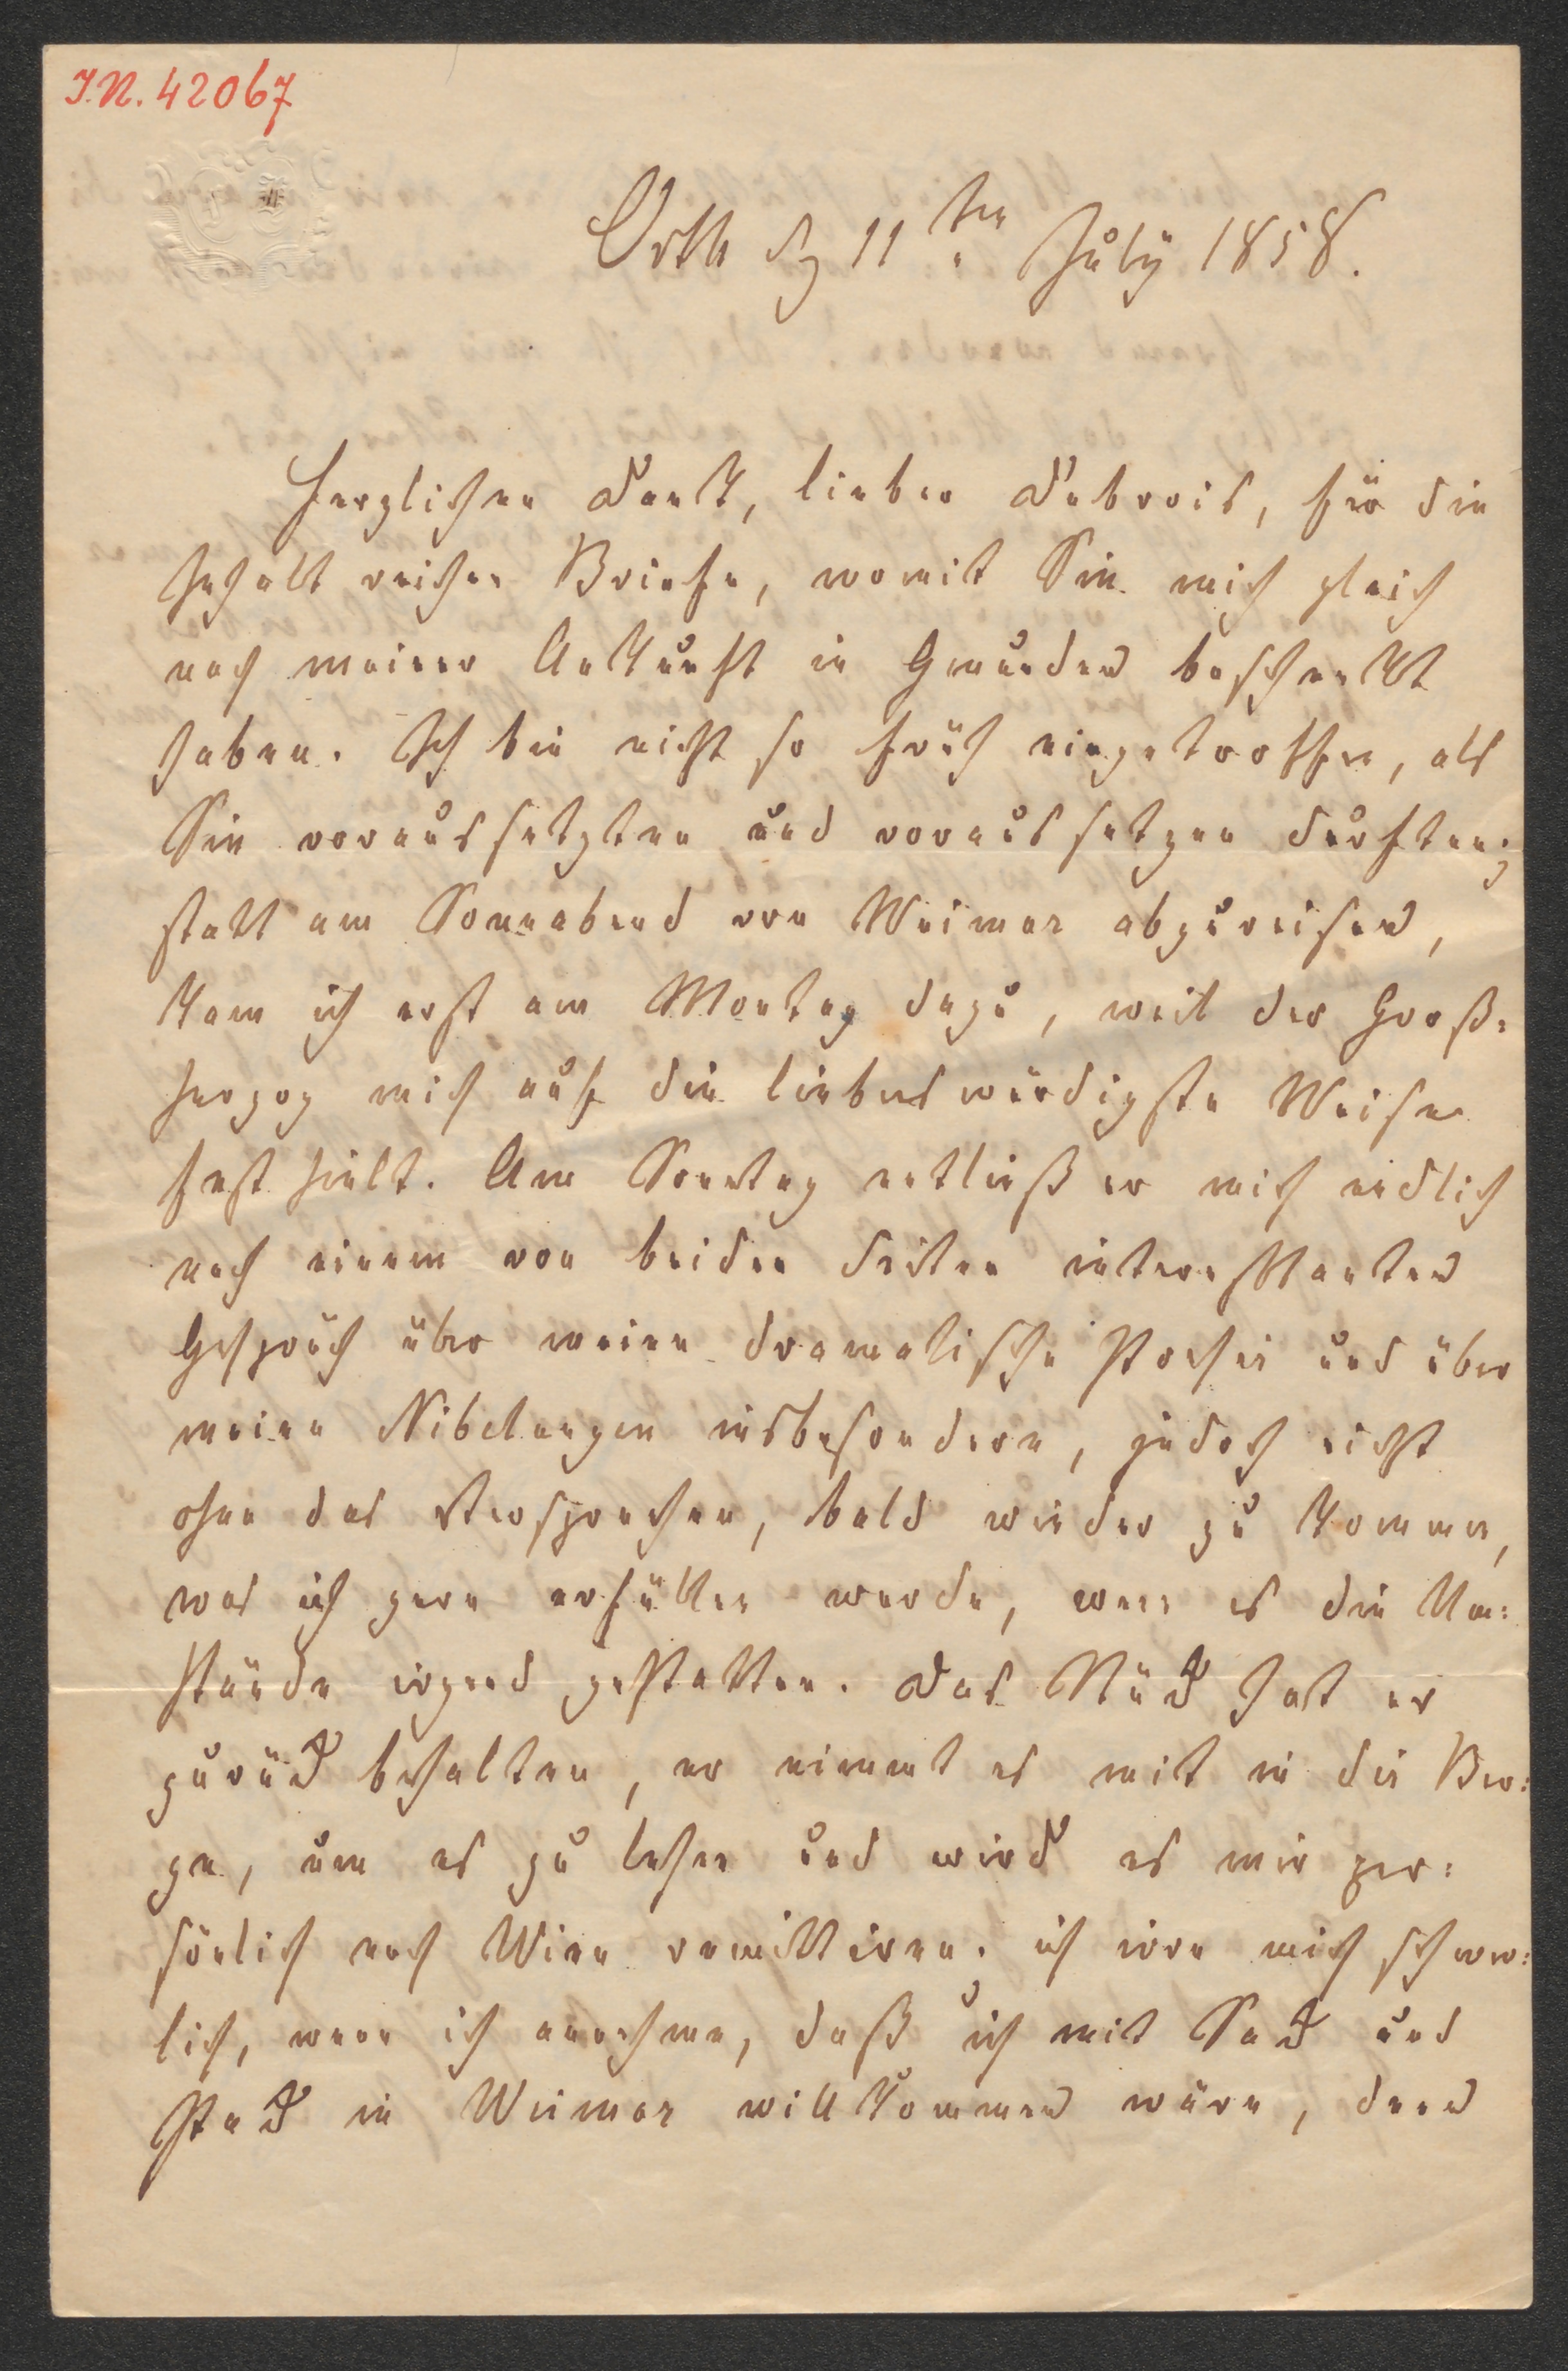 I.N. 42067
Orth dz 11ten July 1858.
Herzlichen Dank, lieber Debrois, für die
Inhalt reichen Briefe, womit Sie mich gleich
nach meiner Ankunft in Gmunden beschenkt
haben. Ich bin nicht so früh eingetroffen, als
Sie voraussetzten und voraussetzen durften;
statt am Sonnabend von Weimar abzureisen,
kam ich erst am Montag dazu, weil der Groß-
herzog mich auf die liebenswürdigste Weise
fest hielt. Am Sonntag entließ er mich endlich
nach einem von beiden Seiten interessanten
Gespräch über meine dramatische Poesie und über
meine Nibelungen insbesondere, jedoch nicht
ohne das Versprechen, bald wieder zu kommen,
was ich gern erfüllen werde, wenn es die Um-
stände irgend gestatten. Das Stück hat er
zurück behalten, er nimmt es mit in die Ber-
ge, um es zu lesen und wird es mir per-
sönlich nach Wien remittiren. ich irre mich schwer-
lich, wenn ich annehme, daß ich mit Sack und
Pack in Weimar willkommen wäre, denn